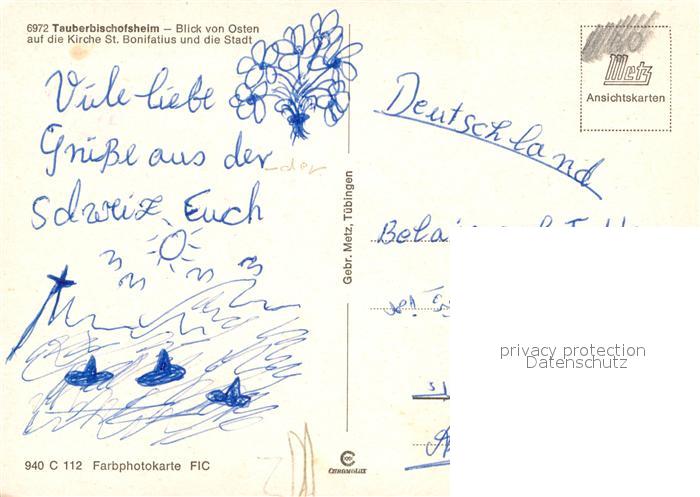 6972 Tauberbischofsheim – Blick von Osten
auf die Kirche St. Bonifatius und die Stadt
Viele liebe
Grüße aus der
-der
Schweiz Euch
940 C 112 Farbphotokarte FIC
Gebr. Metz, Tübingen
CHROMOLUX
Metz
Ansichtskarten
Deutschland
privacy protection
Datenschutz